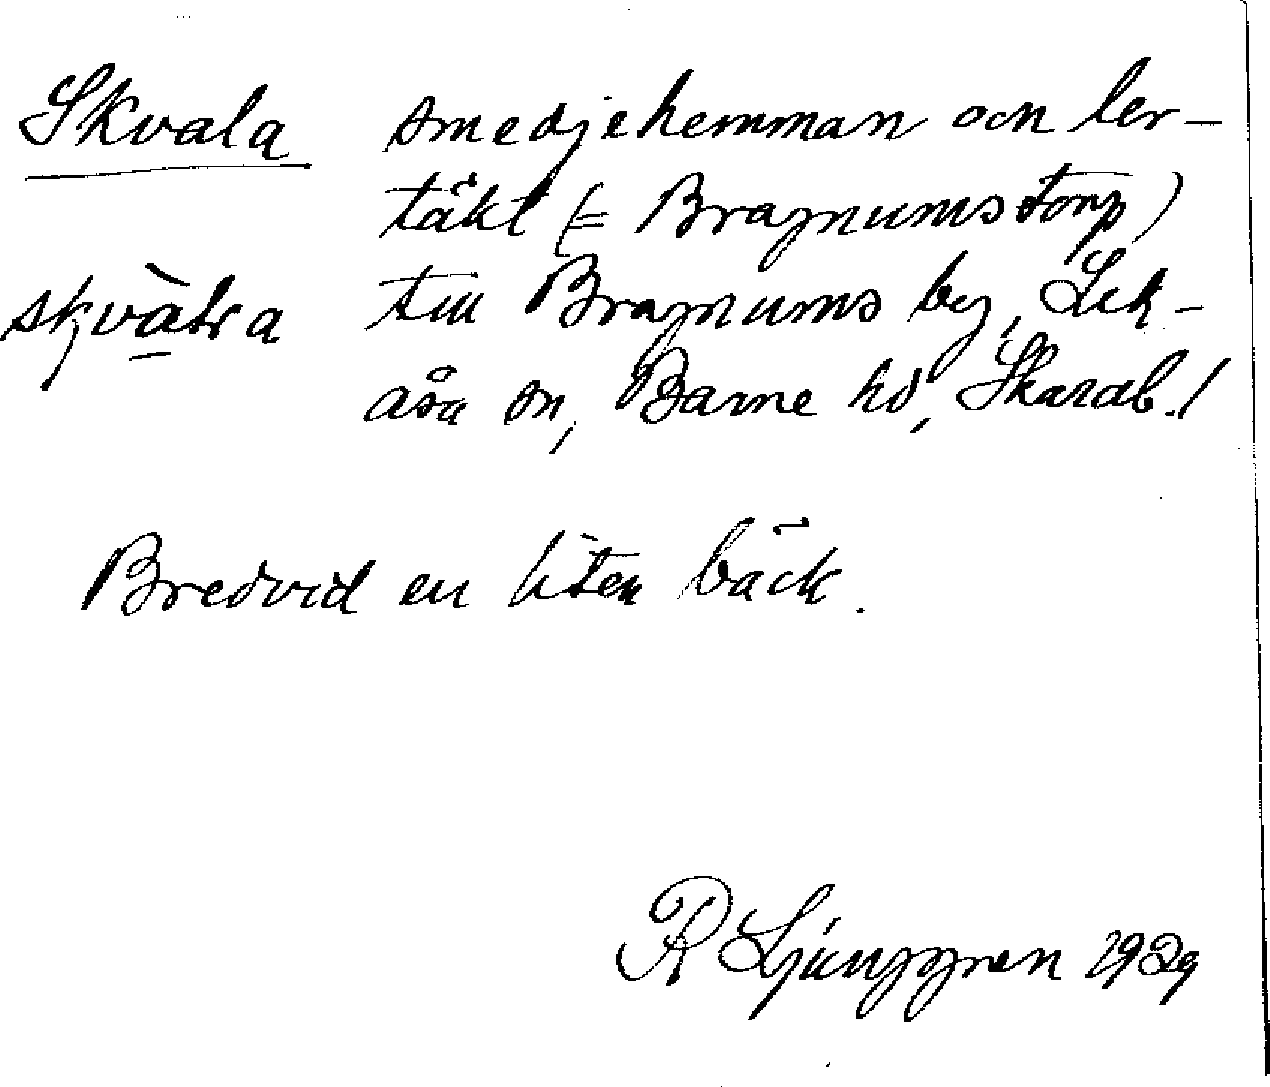 Skvala smedjehemman och ler-
täkt (= Bragnumstorp)
skvàla till Bragnums by, Lek-
åsa sn, Barne hd, Skarab. l
Bredvid en liten bäck.
R Ljunggren 1929